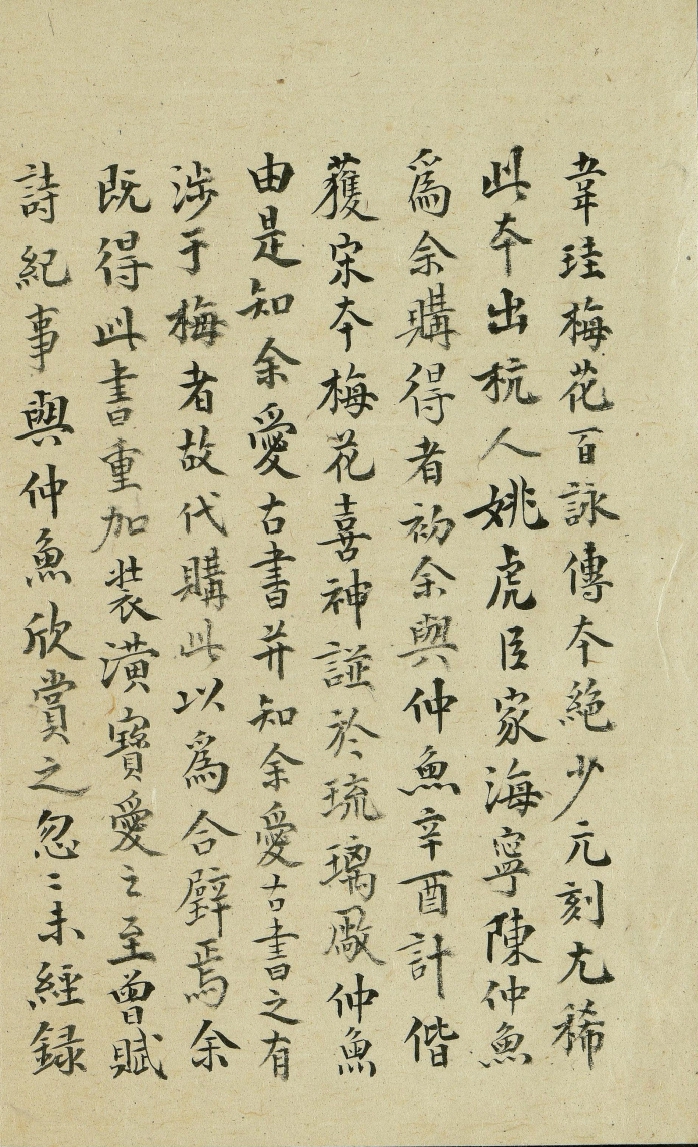 韋珪梅花百詠傳本絶少元刻尤稀
此本出杭人姚虎臣家海寧陳仲魚
爲余購得者初余與仲魚辛酉計偕
獲宋本梅花喜神譜於琉璃厰仲魚
由是知余愛古書并知余愛古書之有
涉于梅者故代購此以爲合璧焉余
既得此書重加裝潢寶愛之至曾賦
詩紀事與仲魚欣賞之忽〻未經録